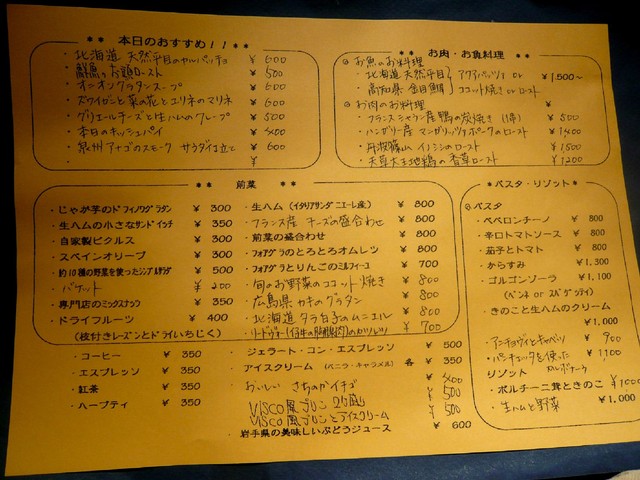 ** 本日のおすすめ!! **
・北海道 天然平目のカルパッチョ ¥600
・鮮魚のお頭ロースト ¥500
・オニオングラタンスープ ¥600
・ズワイガニと菜の花とユリネのマリネ ¥600
・グリエールチーズと生ハムのクレープ ¥500
・本日のキッシュパイ ¥400
・泉州アナゴのスモーク サラダ仕立て ¥600
・ ¥
** お肉・お魚料理 **
◎お魚のお料理
・北海道 天然平目 アクアパッツァ or ¥1,500〜
・高知県 金目鯛 ココット焼き or ロースト
◎お肉のお料理
・フランス産鴨の炭焼き ¥500
・ハンガリー産 マンガリッツァポークのロースト ¥1400
・丹波篠山 イノシシのロースト ¥1500
・天草大王地鶏の香草ロースト ¥1200
** 前菜 **
・じゃが芋のドフィノワグラタン ¥300
・生ハムの小さなサンドイッチ ¥350
・自家製ピクルス ¥300
・スペインオリーブ ¥300
・約10種の野菜を使ったシンプルサラダ ¥500
・バゲット ¥200
・専門店のミックスナッツ ¥350
・ドライフルーツ ¥400
(枝付きレーズンとドライいちじく)
・生ハム (イタリアサンダニエーレ産) ¥800
・フランス産 チーズの盛合わせ ¥800
・前菜の盛合わせ ¥800
・フォアグラのとろとろオムレツ ¥800
・フォアグラとりんごのミルフィーユ ¥700
・旬のお野菜のココット焼き ¥800
・広島県カキのグラタン ¥800
・北海道タラ白子のムニエル ¥800
・リードヴォー(仔牛の胸腺肉)のカツレツ ¥700
*パスタ・リゾット*
◎パスタ
・ペペロンチーノ ¥800
・辛口トマトソース ¥800
・茄子とトマト ¥800
・からすみ ¥1,300
・ゴルゴンゾーラ ¥1,100
(ペンネ or スパゲッティ)
・きのこと生ハムのクリーム ¥1,000
・アンチョヴィとキャベツ ¥900
・パンチェッタを使ったカルボナーラ ¥1100
リゾット
・ポルチーニ茸ときのこ ¥1100
・生ハムと野菜 ¥1,000
・コーヒー ¥350
・エスプレッソ ¥350
・紅茶 ¥350
・ハーブティ ¥350
・ジェラート・コン・エスプレッソ ¥500
・アイスクリーム (バニラ・キャラメル) 各 ¥350
・おいしい さちのかイチゴ ¥400
・VISCO風プリン ¥500
・VISCO風プリンとアイスクリーム ¥500
・岩手県の美味しいぶどうジュース ¥600